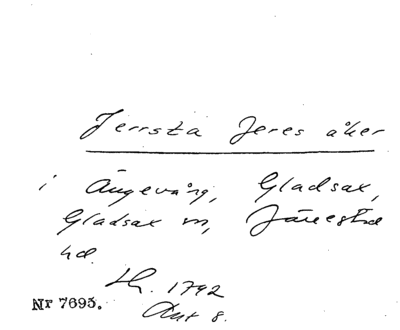 Jerrsta Jeres åker
i Ängevång, Gladsax,
Gladsax sn, Järrestad
hd.
Lh. 1792
Akt 8.
Nr 7695.